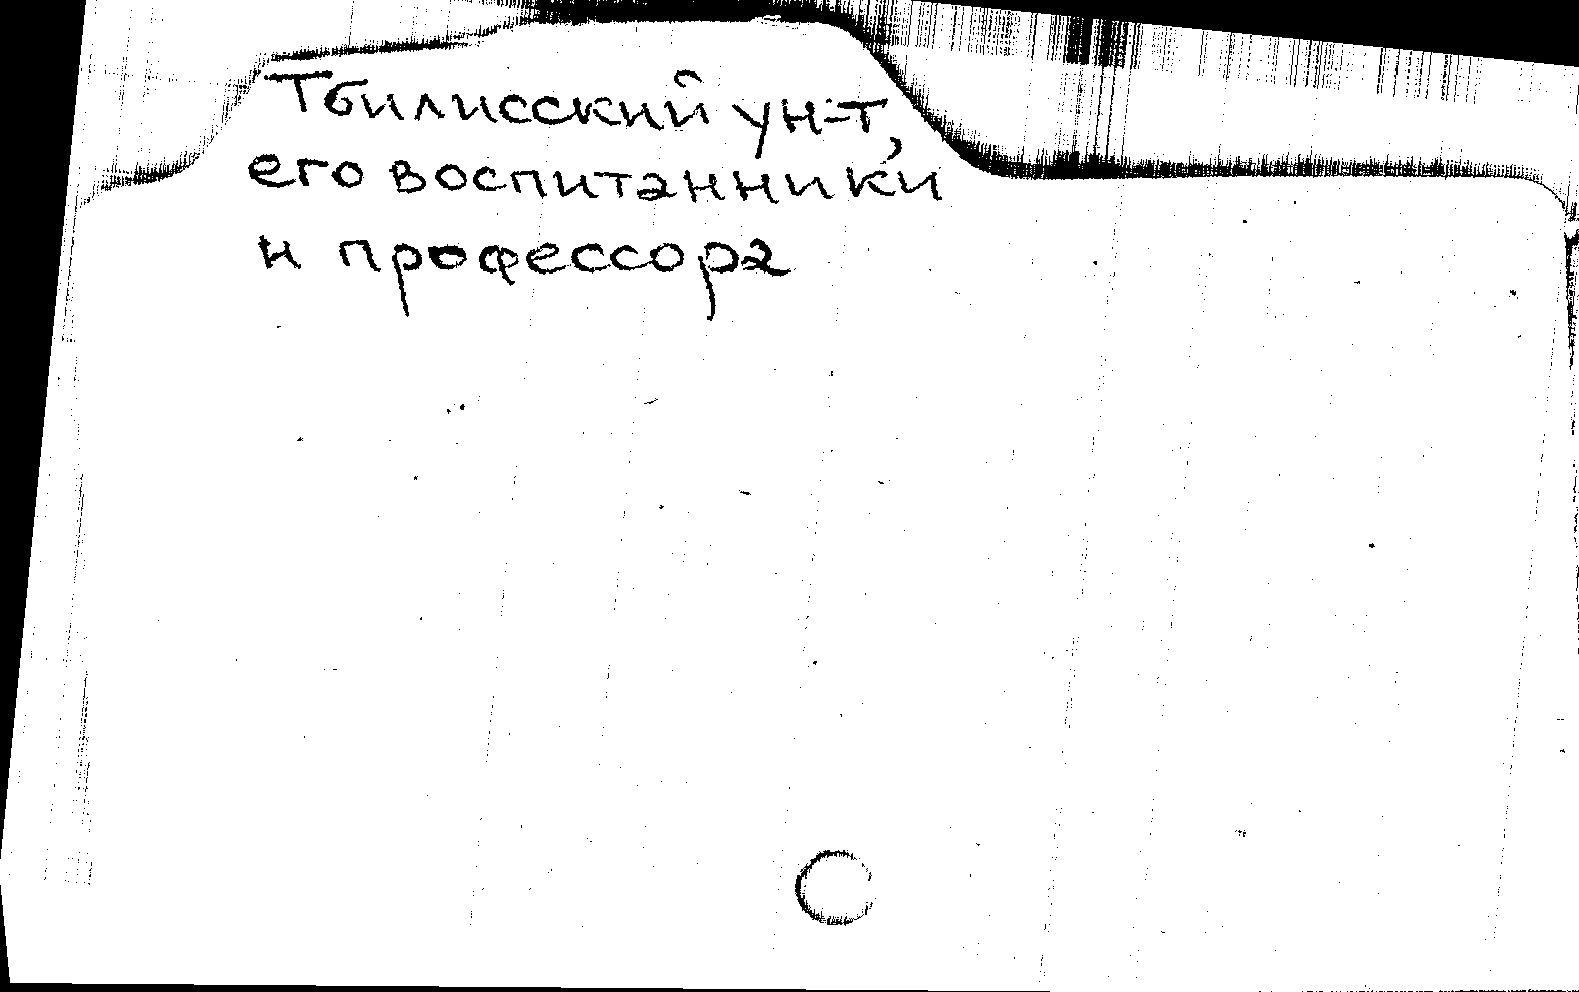 Тбилисский ун-т,
его воспитанники
и профессора